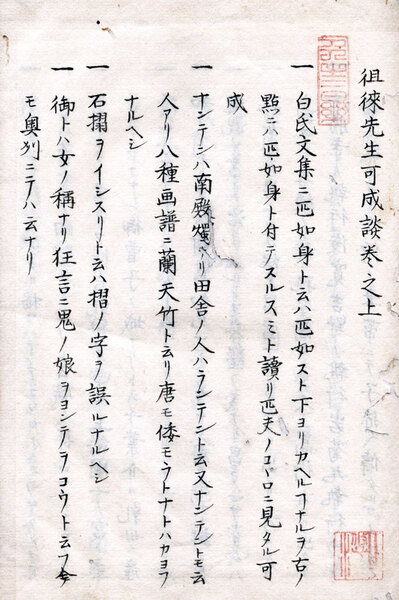 徂徠先生可成談巻之上
一 白氏文集ニ匹如身ト云ハ匹如スト下ヨリカヘルフナルヲ古ノ
點ニハ匹如身ト付テスルスミト讀リ匹夫ノコヽロニ見タル可
成
一 ナンテンハ南殿燭ナリ田舎ノ人ハランテント云又ナンテントモ云
人アリ八種画譜ニ蘭天竹ト云リ唐モ倭モラトナトハカヨフ
ナルヘシ
一 石摺ヲイシスリト云ハ摺ノ字ヲ誤ルナルヘシ
一 御トハ女ノ稱ナリ狂言ニ鬼ノ娘ヲヨンテヲコウト云フ今
モ奥列ニテハ云ナリ